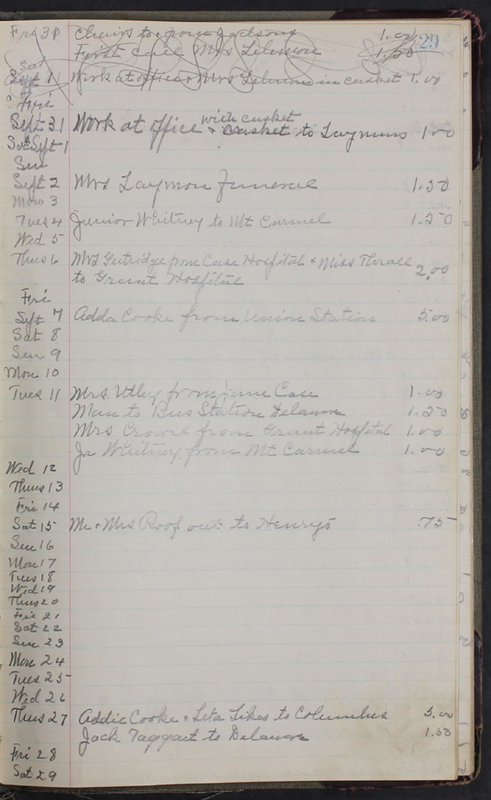 29
Fri 31 Chairs to & from Jacksons 1.00
First call Mrs Lehmon 1.50
Sat
Sept 1 Work at office & Mrs Lehmon in casket 1.00
Fri
Sept 31 Work at office & with casket
Sat Sept 1 casket to Laymons 1.00
Sun
Sept 2 Mrs Laymon Funeral 1.50
Mon 3
Tues 4 Junior Whitney to Mt Carmel 1.50
Wed 5
Thus 6 Mrs Gutridge from Case Hospital & Miss Thrall 2.00
to Grant Hospital
Fri
Sept 7 Adda Cooke from Union Station 5.00
Sat 8
Sun 9
Mon 10
Tues 11 Mrs. Utley from Jane Case 1.00
Man to Bus Station Delawre 1.50
Mrs Crowl from Grant Hospital 1.00
Jr Whitney from Mt Carmel 1.00
Wed 12
Thus 13
Fri 14
Sat 15 Mr & Mrs Roof out to Henrys .75
Sun 16
Mon 17
Tues 18
Wed 19
Thus 20
Fri 21
Sat 22
Sun 23
Mon 24
Tues 25
Wed 26
Thus 27 Addie Cooke & Leta Likes to Columbus 5.00
Jack Taggart to Delawre 1.50
Fri 28
Sat 29